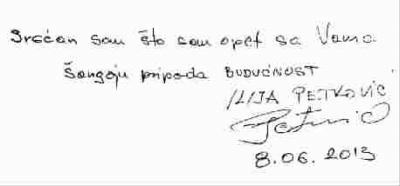 Srećan sam što sam opet sa Vama.
Šangaju pripada BUDUĆNOST
ILIJA PETKOVIĆ
Petković
8.06.2013